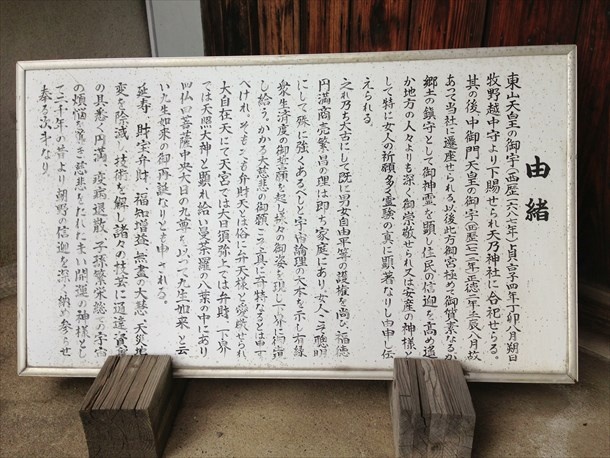 由緒
東山天皇の御宇(西歴一六八七年)貞享四年丁卯八月朔日
牧野越中守より下賜せられ天乃神社に合祀せらる。
其の後中御門天皇の御宇(西歴一七一二年)正徳二年壬辰八月故
あつて当社に遷座せられる。以後此方御宮極めて御質素なるが
郷土の鎮守として御神霊を顕し住民の信迎を高め遙
か地方の人々よりも深く御崇敬せられ又は安産の神様と
して特に女人の祈願多く霊験の真に顕著なりし由申し伝
えられる。
之れ乃ち太古にして既に男女自由平等の護権を尚び、福徳
円満商売繁昌の理は即ち家庭にあり。女人こそ聰明
にして殊に強くあるべしと宇宙論理の大本を示し有縁
衆生済度の御誓願を起し様々の御姿を現し下界に御宿
し給う。かかる大慈悲の御願こそ真に弁特なるとは申す
べけれ。そもそも弁財天とは俗に弁天様と愛敬せられ
大自在天にて天宮では大日須弥山上では弁財、下界
では天照大神と顕れ給い曼荼羅の八葉の中にあり
四仏四菩薩中央大日の九尊を以つて九生如来と云
い九生如来の御再誕なりとも申される。
延寿、財宝弁財、福知増益、無盡の大慈、天災地
変を除滅し技術を
の具悉く円満、疫病退散、子孫繁栄総ての宇宙
の煩悩を慈悲をたれたまい開運の神様とし
て三千年の昔より朝野の信迎を深く納め参らせ
奉る次第なり。